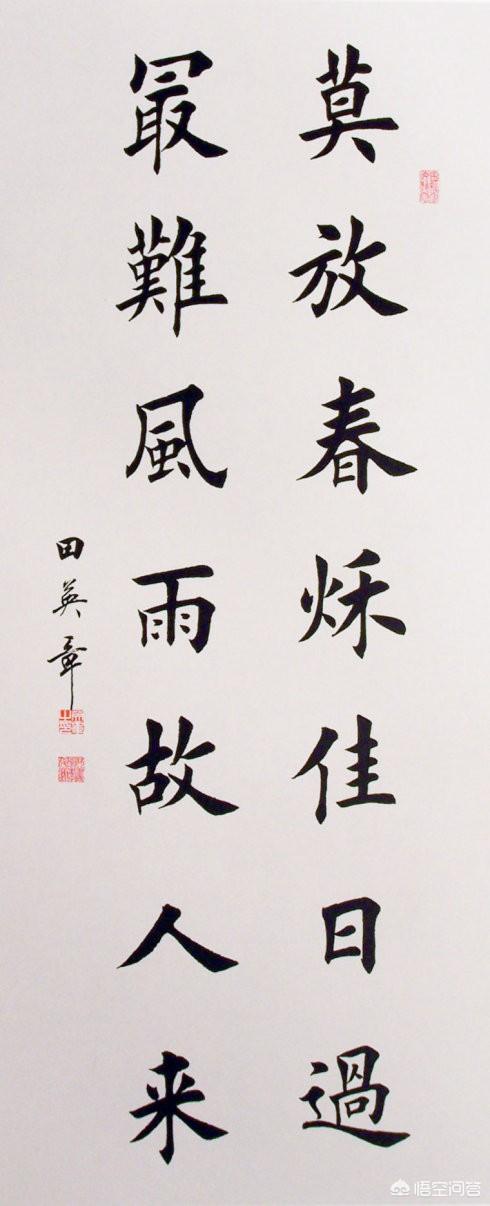 莫放春秌佳日過
冣難風雨故人来
田英章
悟空问答